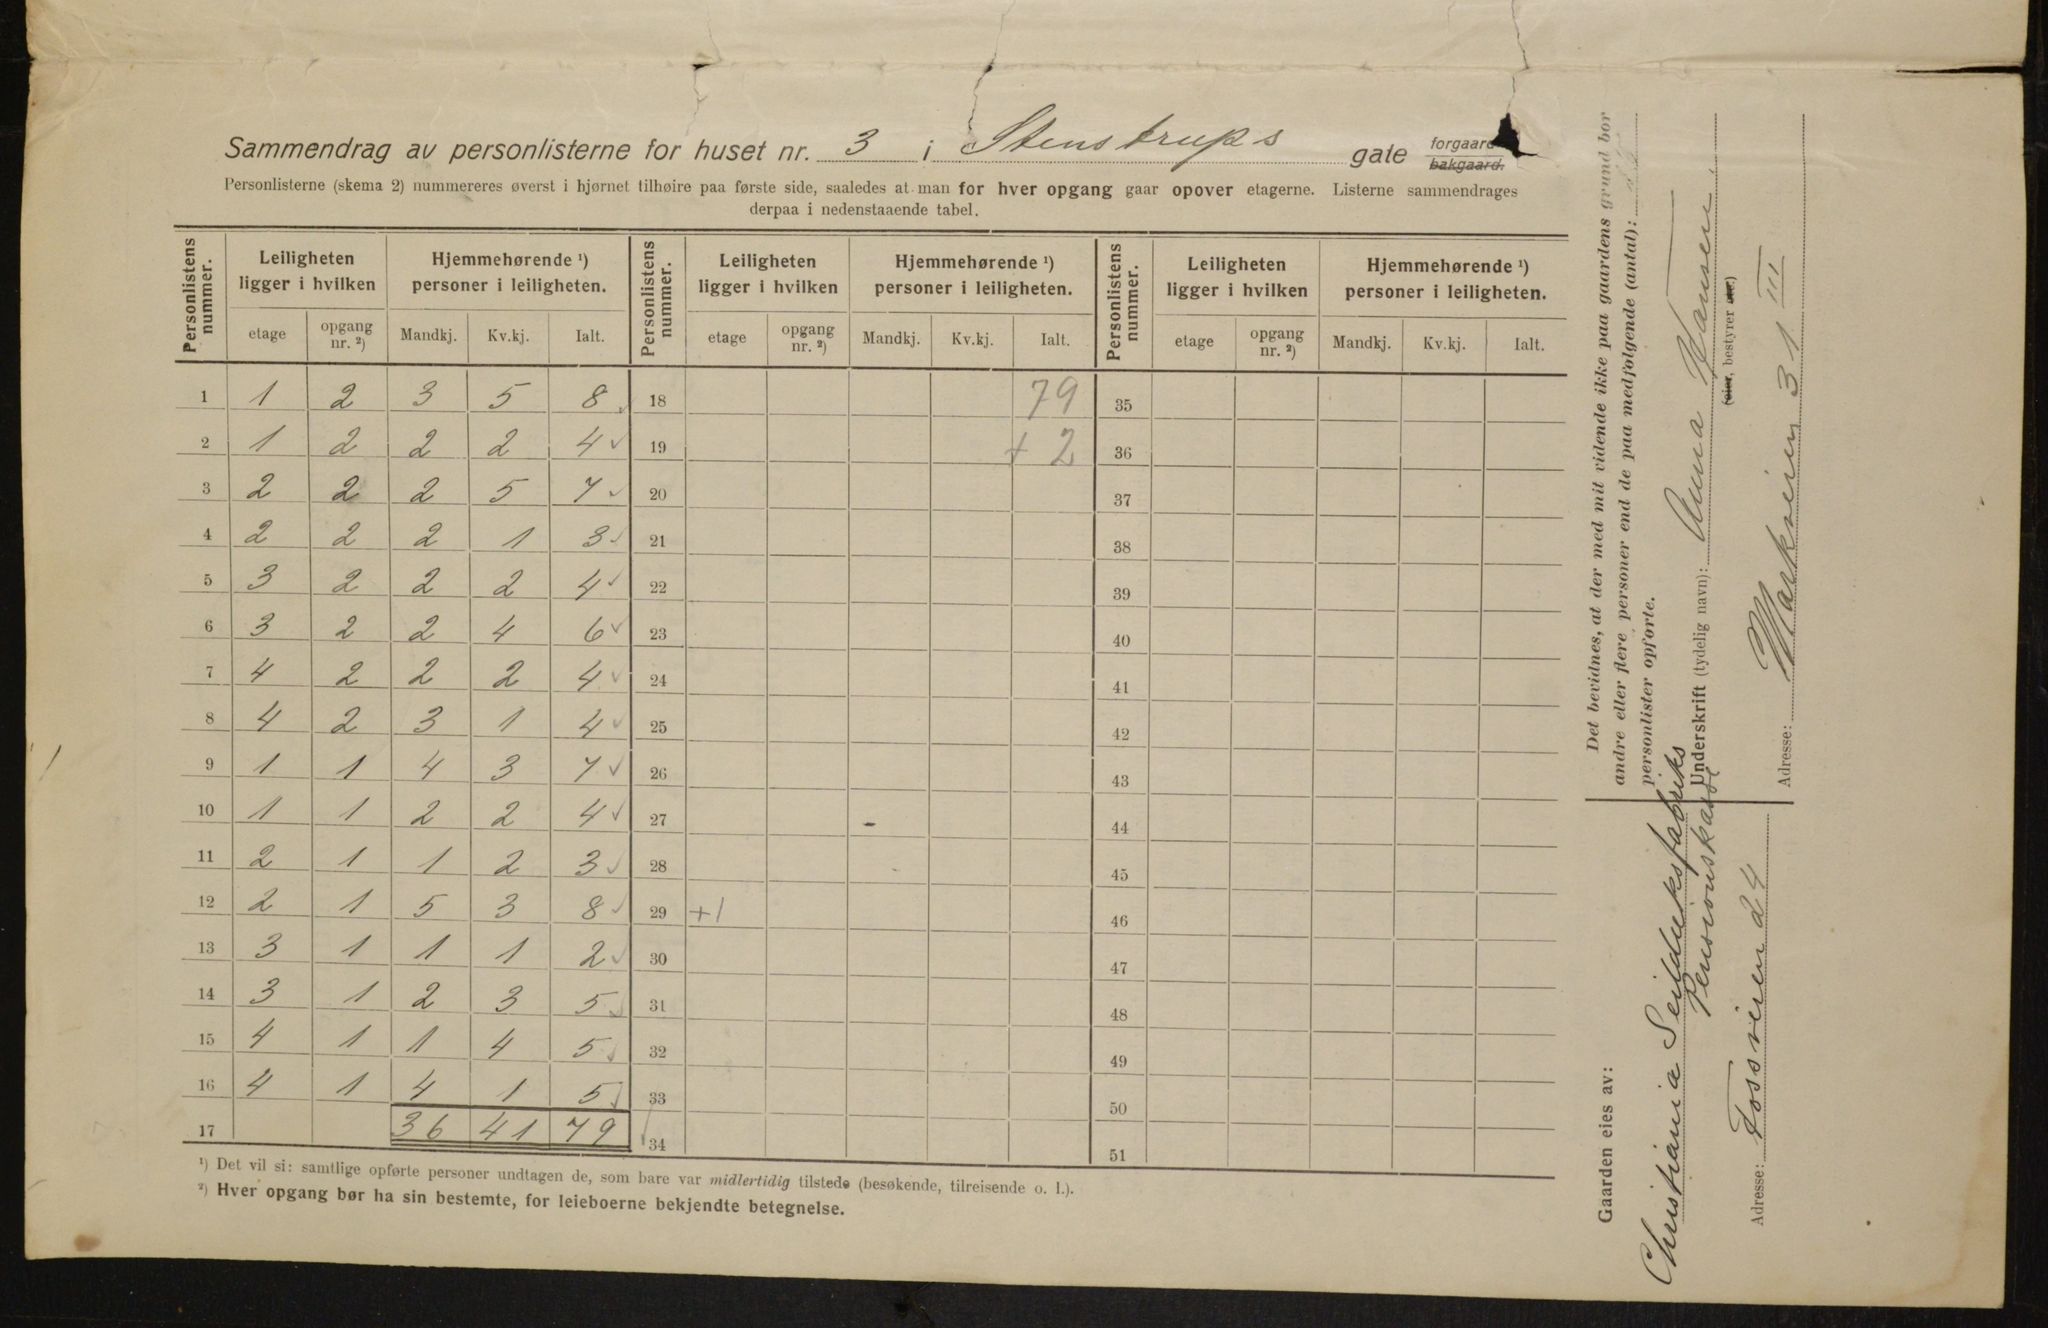 Sammendrag av personlisterne for huset nr. 3 i Stenstrups gate forgaard. bakgaard.
Personlisterne (skema 2) nummereres øverst i hjørnet tilhøire paa første side, saaledes at man for hver opgang gaar opover etagerne. Listerne sammendrages
derpaa i nedenstaaende tabel.
Personlistens nummer. Leiligheten ligger i hvilken Hjemmehørende ¹) personer i leiligheten. Personlistens nummer. Leiligheten ligger i hvilken Hjemmehørende ¹) personer i leiligheten. Personlistens nummer. Leiligheten ligger i hvilken Hjemmehørende ¹) personer i leiligheten.
etage opgang nr. ²) Mandkj. Kv.kj. Ialt. etage opgang nr. ²) Mandkj. Kv.kj. Ialt. etage opgang nr. ²) Mandkj. Kv.kj. Ialt.
1 1 2 3 5 8 18 79 35
2 1 2 2 2 4 19 + 2 36
3 2 2 2 5 7 20 37
4 2 2 2 1 3 21 38
5 3 2 2 2 4 22 39
6 3 2 2 4 6 23 40
7 4 2 2 2 4 24 41
8 4 2 3 1 4 25 42
9 1 1 4 3 7 26 43
10 1 1 2 2 4 27 44
11 2 1 1 2 3 28 45
12 2 1 5 3 8 29 +1 46
13 3 1 1 1 2 30 47
14 3 1 2 3 5 31 48
15 4 1 1 4 5 32 49
16 4 1 4 1 5 33 50
17 36 41 79 34 51
¹) Det vil si: samtlige opførte personer undtagen de, som bare var midlertidig tilstede (besøkende, tilreisende o. l.).
²) Hver opgang bør ha sin bestemte, for leieboerne bekjendte betegnelse.
Det bevidnes, at der med mit vidende ikke paa gaardens grund bor
andre eller flere personer end de paa medfølgende (antal):
personlister opførte.
Underskrift (tydelig navn): Anna Hansen.
(eier, bestyrer etc.)
Adresse: Markveien 31 III
Gaarden eies av:
Christiania Seilduksfabriks
Pensionskasse
Adresse: Fossveien 24